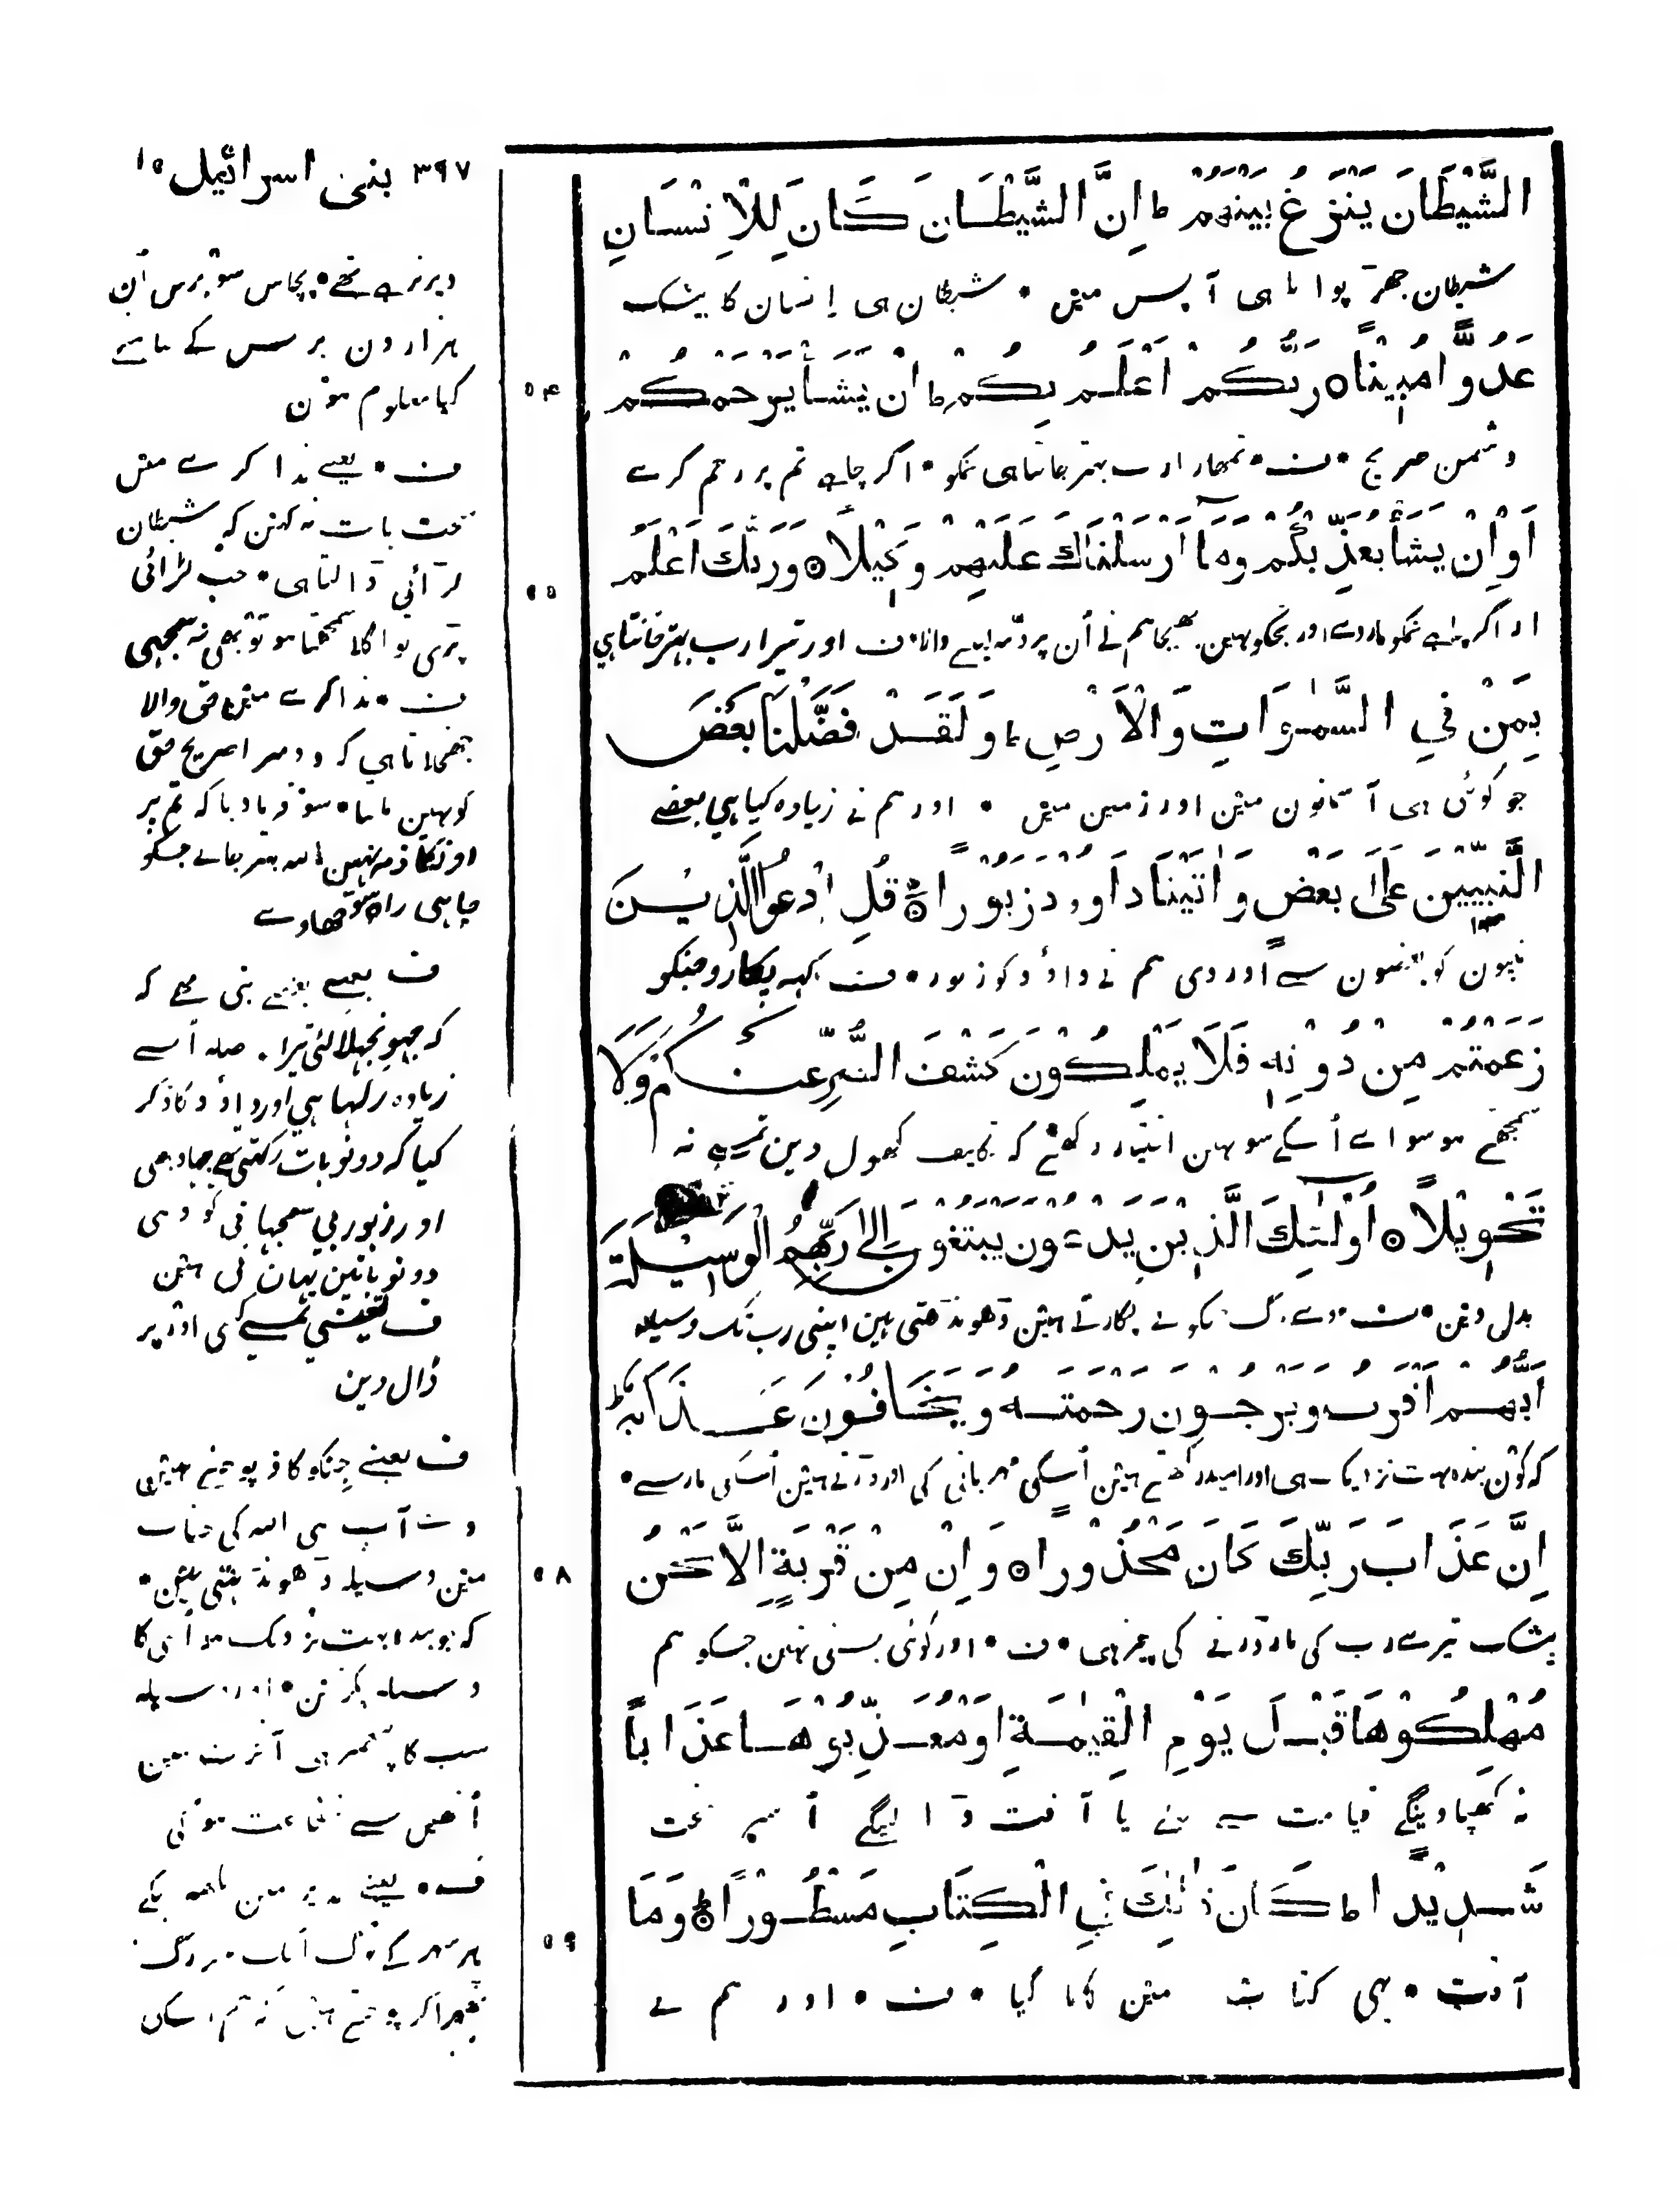 ۳۹۷ بنی اسرائیل ۱۵
الشَّيْطَانَ يَنْزَغُ بَيْنَهُمْ ط اِنَّ الشَّيْطَانَ كَانَ لِلْاِنْسَانِ
شیطان جھڑپواتا ہی آپس میں • شیطان ہی اِنسان کا بیشک
عَدُوًّا مُّبِيْنًا ○ رَبُّكُمْ اَعْلَمُ بِكُمْ ط اِنْ يَشَأْ يَرْحَمْكُمْ
۵۴
دشمن صریح • ف • تمھارا رب بہتر جانتا ہی تمکو • اگر چاہے تم پر رحم کرے
اَوْ اِنْ يَشَأْ يُعَذِّبْكُمْ وَمَا اَرْسَلْنَاكَ عَلَيْهِمْ وَكِيْلًا ○ وَرَبُّكَ اَعْلَمُ
۵۵
اور اگر چاہے تمکو مار دے اور تجکو نہین بھیجا ہم نے اُن پر ذمہ لینے والا • ف اور تیرا رب بہتر جانتا ہی
بِمَنْ فِي السَّمٰوَاتِ وَالْاَرْضِ ط وَلَقَدْ فَضَّلْنَا بَعْضَ
جو کوئی ہی آسمانون مین اور زمین مین • اور ہم نے زیادہ کیا ہی بعضے
النَّبِيّٖنَ عَلٰى بَعْضٍ وَاٰتَيْنَا دَاوٗدَ زَبُوْرًا ○ قُلِ ادْعُوا الَّذِيْنَ
نبیون کو بعضون سے اور دی ہم نے داؤد کو زبور • ف کہہ پکارو جنکو
زَعَمْتُمْ مِنْ دُوْنِهٖ فَلَا يَمْلِكُوْنَ كَشْفَ الضُّرِّ عَنْكُمْ وَلَا
سمجھتے ہو سواے اُسکے سو نہین اختیار رکھتے کہ تکلیف کھول دین تم سے نہ
تَحْوِيْلًا ○ اُولٰئِكَ الَّذِيْنَ يَدْعُوْنَ يَبْتَغُوْنَ اِلٰى رَبِّهِمُ الْوَسِيْلَةَ
بدل دین • ف • وے لوگ جنکو یے پکارتے ہین ڈھونڈھتی ہین اپنی رب تک وسیلہ
اَيُّهُمْ اَقْرَبُ وَيَرْجُوْنَ رَحْمَتَهٗ وَيَخَافُوْنَ عَذَابَهٗ ط
کہ کون بندہ بہت نزدیک ہی اور امید رکھتے ہین اُسکی مہربانی کی اور ڈرتے ہین اُسکی مار سے •
اِنَّ عَذَابَ رَبِّكَ كَانَ مَحْذُوْرًا ○ وَاِنْ مِنْ قَرْيَةٍ اِلَّا نَحْنُ
۵۸
بیشک تیرے رب کی مار ڈرنے کی چیز ہی • ف • اور کوئی بستی نہین جسکو ہم
مُهْلِكُوْهَا قَبْلَ يَوْمِ الْقِيٰمَةِ اَوْ مُعَذِّبُوْهَا عَذَابًا
نہ کھپا دینگے قیامت سے پہلے یا آفت ڈالینگے اُسپر سخت
شَدِيْدًا ط كَانَ ذٰلِكَ فِي الْكِتَابِ مَسْطُوْرًا ○ وَمَا
۵۹
آفت • یہی کتاب مین لکھا گیا • ف • اور ہم نے
دیر نرہے تھے • پچاس سو برس اُن
ہزارون برس کے سامنے
کیا معلوم ہون
ف • یعنے مذاکرے مین
سخت بات نہ کہین کہ شیطان
لڑائی ڈالتا ہی • جب لڑائی
پڑی تو اگلا سمجھتا ہو تو بھی نہ سمجھی
ف • مذاکرے مین حق والا
جھنجلاتا ہی کہ دوسرا صریح حق
کو نہین مانتا • سو فرمادیا کہ تم پر
اونکا ذمہ نہین اللہ بہتر جانے جسکو
چاہی راہ سوجھاوے
ف یعنے بعضے نبی تھے کہ
زیادہ رکھا ہی اور داؤد کا ذکر
کیا کہ دونو بات رکھتی تھے جہاد بھی
اور زبور بی سمجھانی کو وہی
دونو باتین یہان بی ہین
ف یعنی تمسے کسی اور پر
ڈال دین
ف یعنے جنکو کافر پوجتے ہین
وے آپ ہی اللہ کی جناب
مین وسیلہ ڈھونڈھتی ہین •
کہ جو بندہ بہت نزدیک ہو اُسی کا
وسیلہ پکڑین • اور وسیلہ
سب کا پیغمبر ہی آخرت مین
اُنھین سے شفاعت ہوگی
ف • یعنے تقدیر مین لکھ چکے
ہر شہر کے لوگ